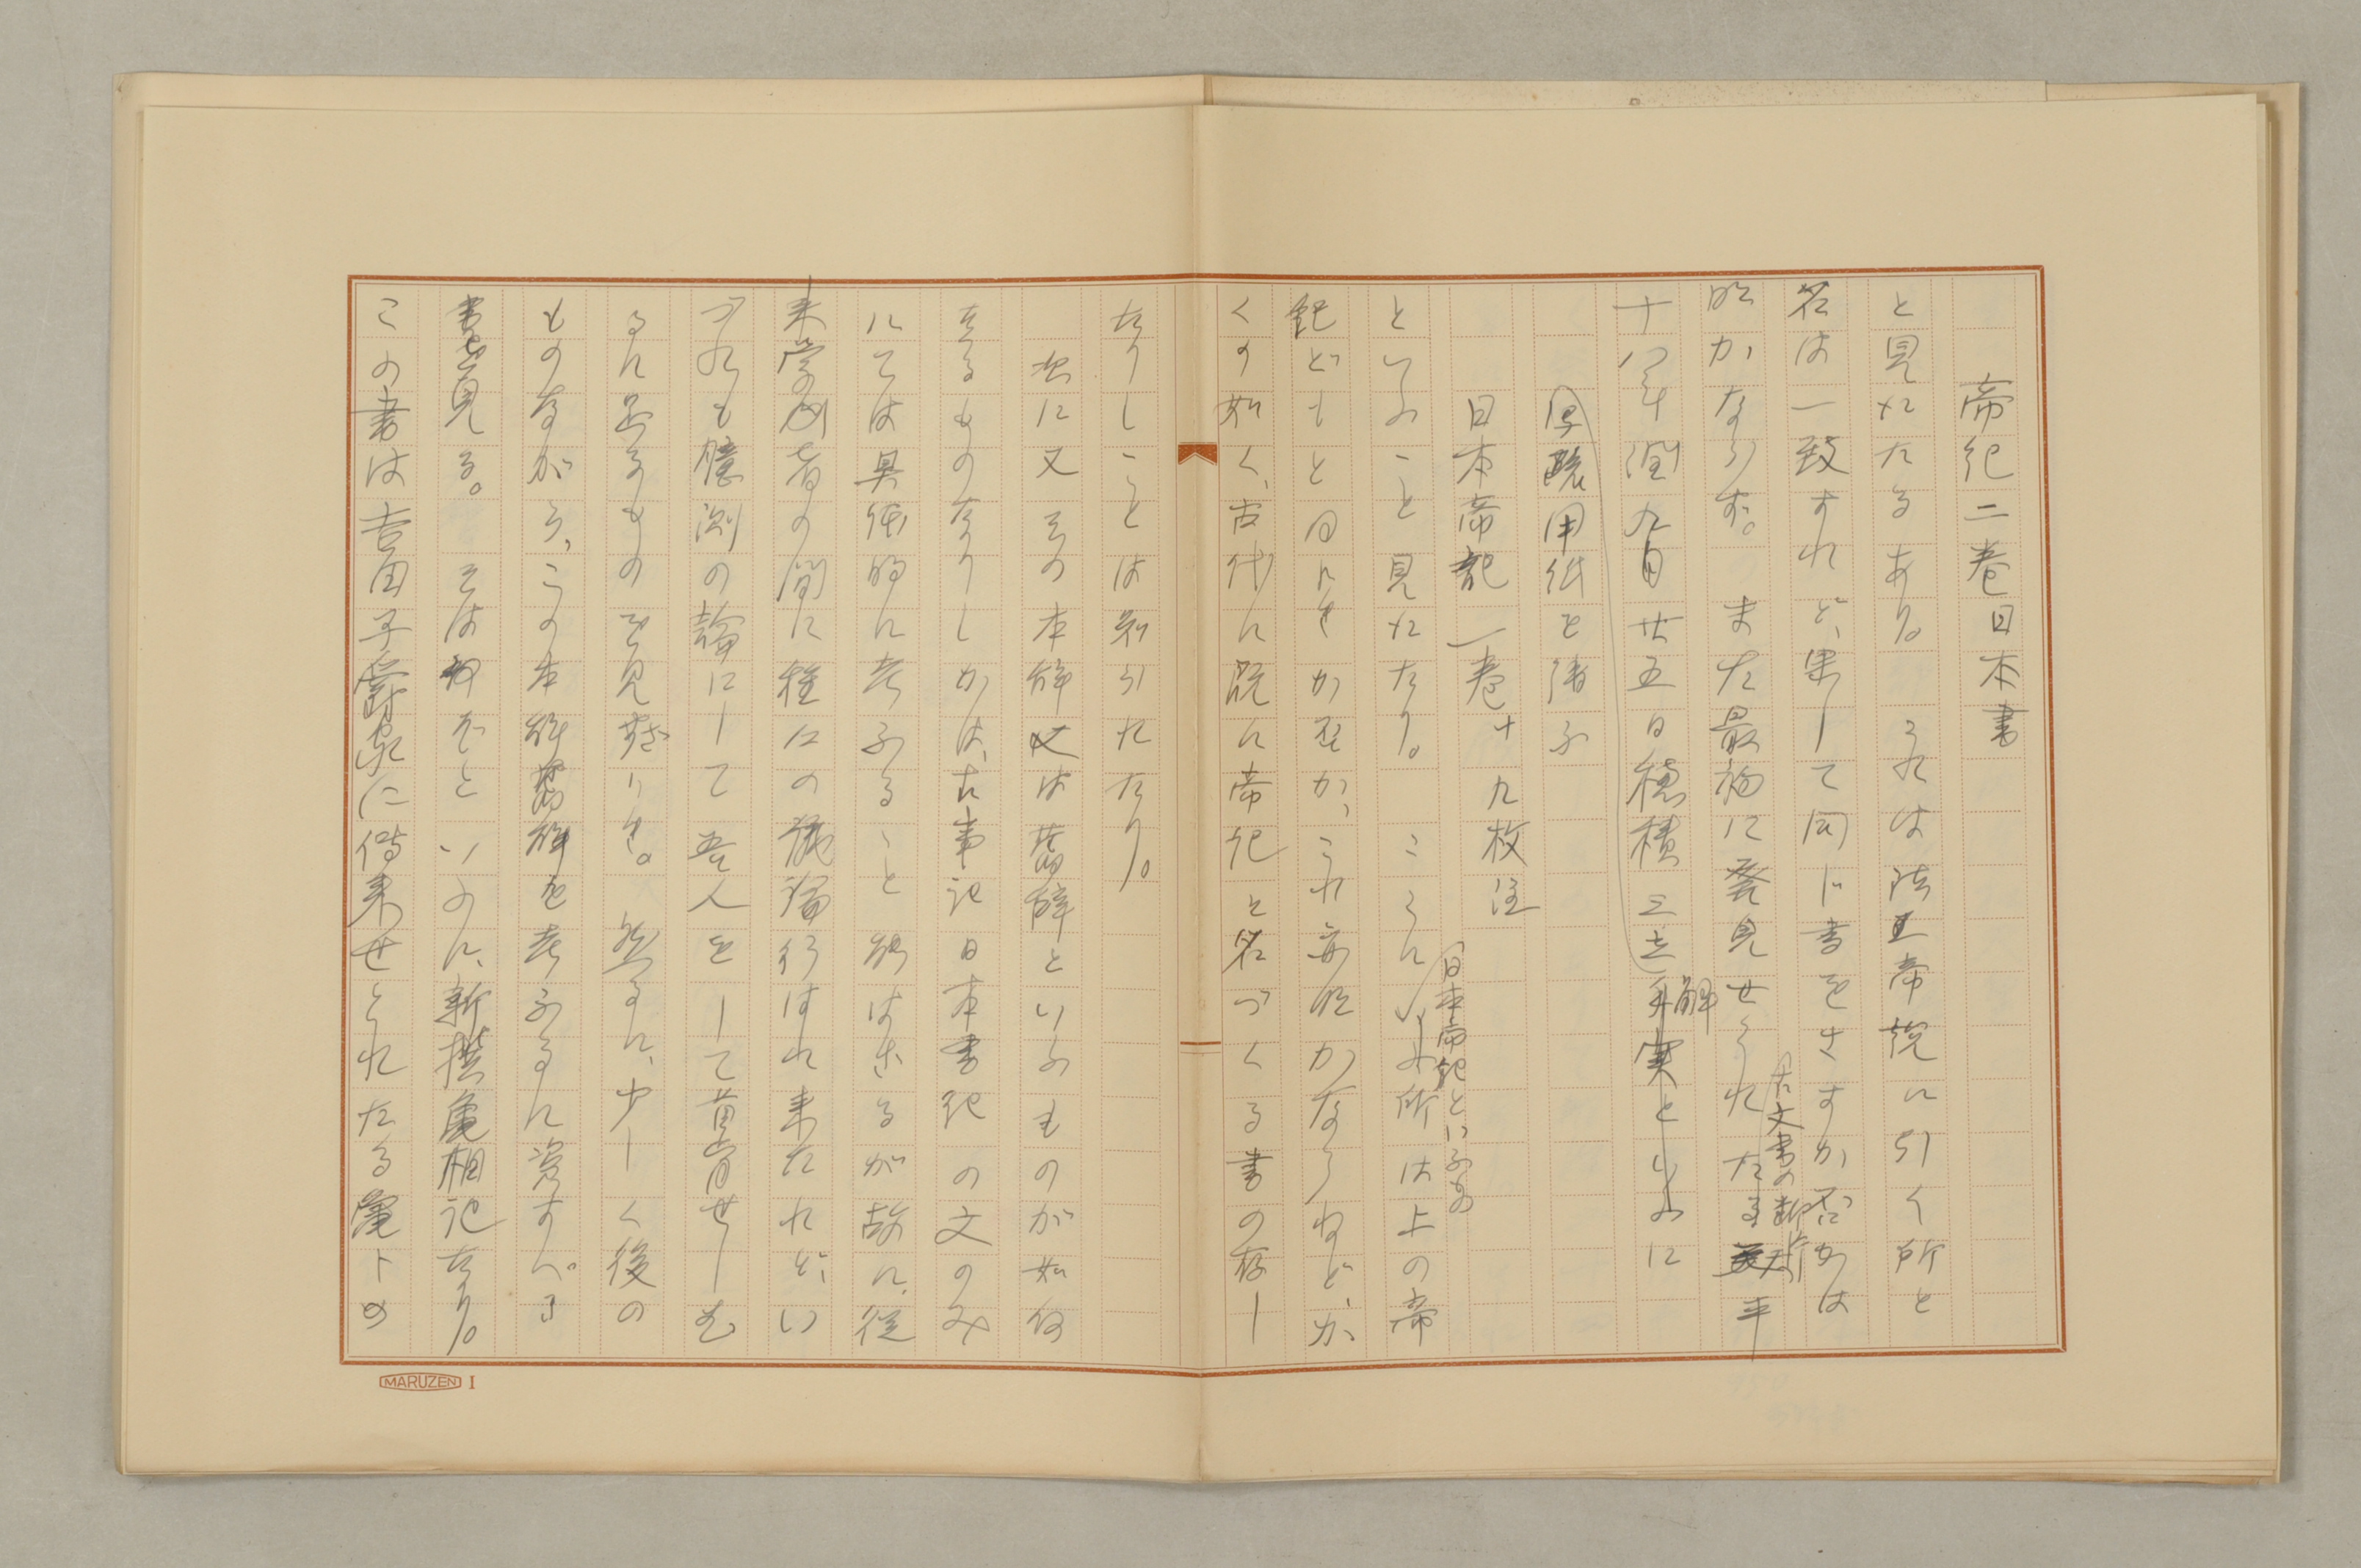 帝紀二巻日本書
と見えたるあり。これは法王帝説に引く所と
名は一致すれど、果して同じ書をさすか否かは
明かならず。また最初に発見せられたる天平
古文書の断片
十八年閏九月廿五日穂積三立手実といふに
解
写疏用紙を請ふ
日本帝記一巻十九枚注
といふこと見えたり。こゝにいふ所は上の帝
日本帝紀といふもの
紀どもと同じきか否か、これ亦明かならねど、か
くの如く、古代に既に帝紀と名づくる書の存し
たりしことは知られたり。
次に又その本辞又は旧辞といふものが如何
なるものなりしかは、古事記日本書紀の文のみ
にては具体的に考ふること能はざるが故に、従
来学者の間に種々の議論行はれ来たれど、い
づれも臆測の論にして吾人をして首肯せしむ
るに足るものを見ざりき。然るに、少しく後の
ものながら、この本辞旧辞を考ふるに資すべき
書を見る。そは何ぞといふに、新撰亀相記なり。
この書は吉田子爵家に伝来せられたる亀卜の
MARUZEN I